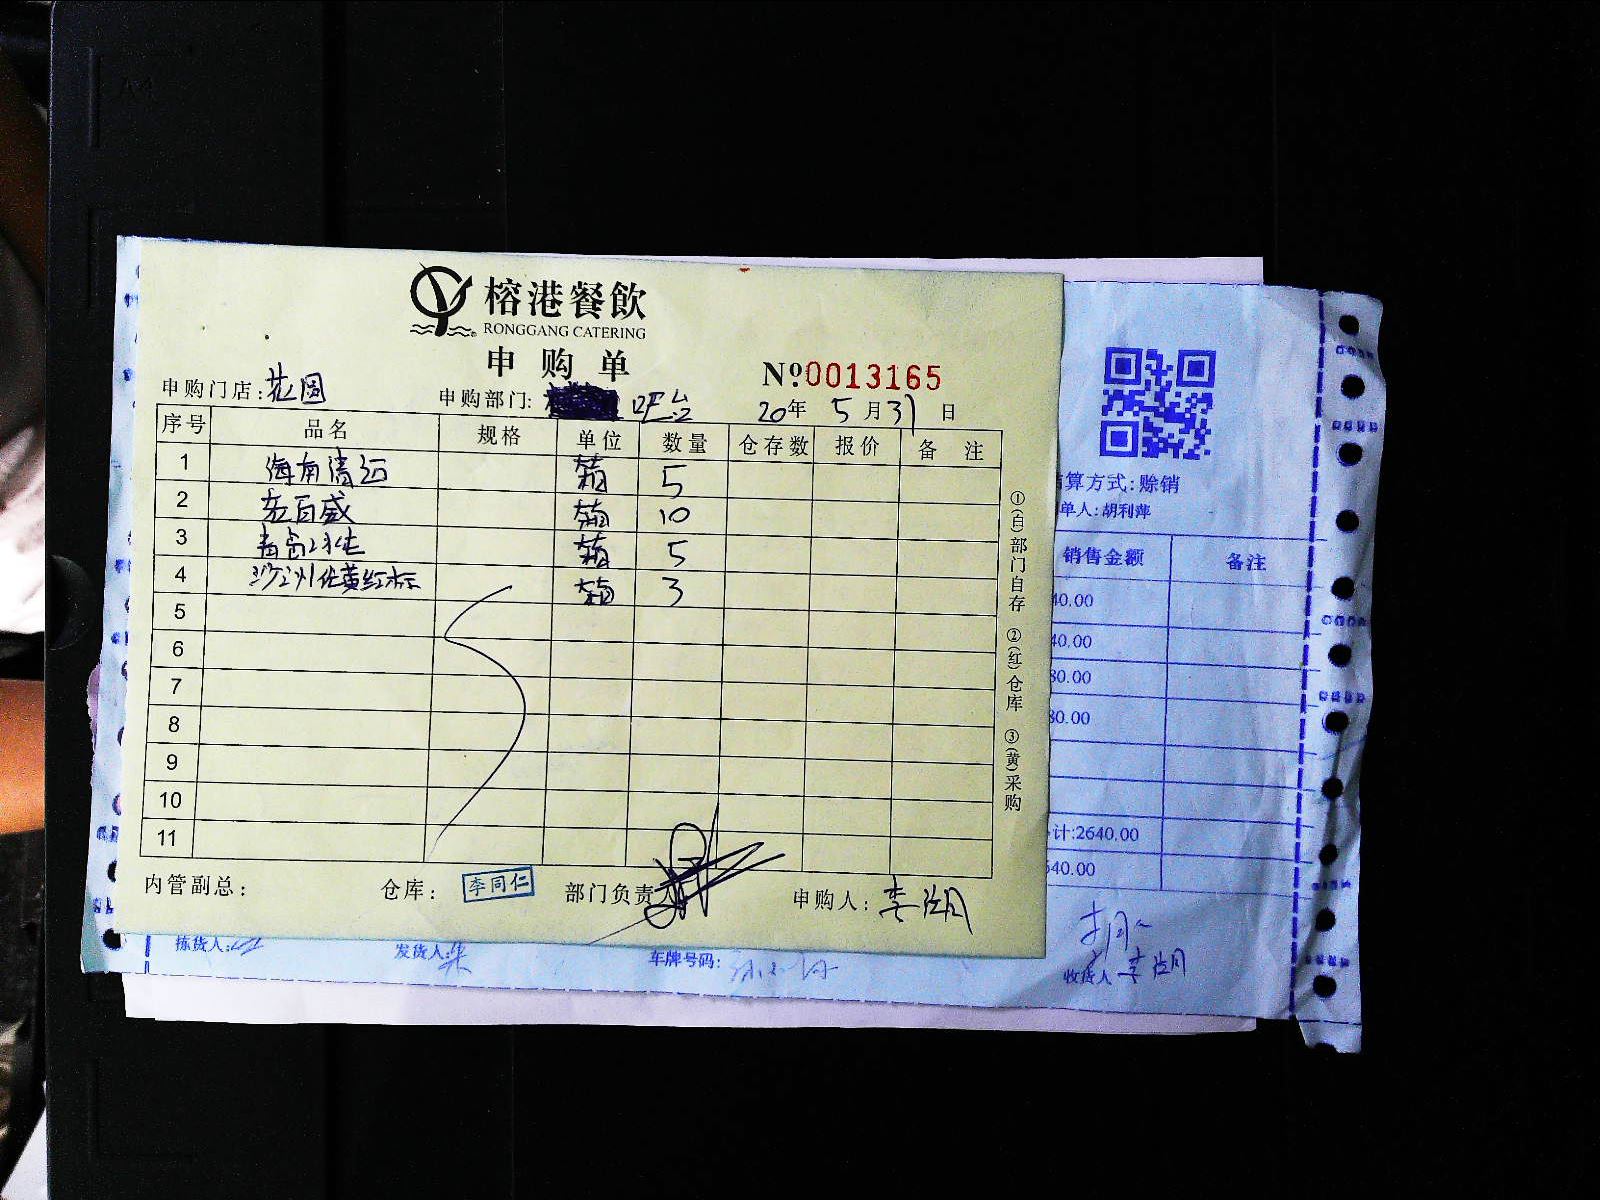 榕港餐飲
RONGGANG CATERING
申购单
Nº0013165
申购门店:花园
申购部门: 吧台
20年 5月31日
序号 品名 规格 单位 数量 仓存数 报价 备 注
1 海南清 箱 5
2 百威 箱 10
3 青岛 纯 箱 5
4 沙洲优黄红标 箱 3
5
6
7
8
9
10
11
内管副总:
仓库: 李同仁
部门负责人
申购人: 李湖
①(白)部门自存 ②(红)仓库 ③(黄)采购
算方式:赊销
单人:胡利萍
销售金额 备注
40.00
40.00
80.00
80.00
计:2640.00
640.00
拣货人:
发货人:
车牌号码:
收货人 李湖